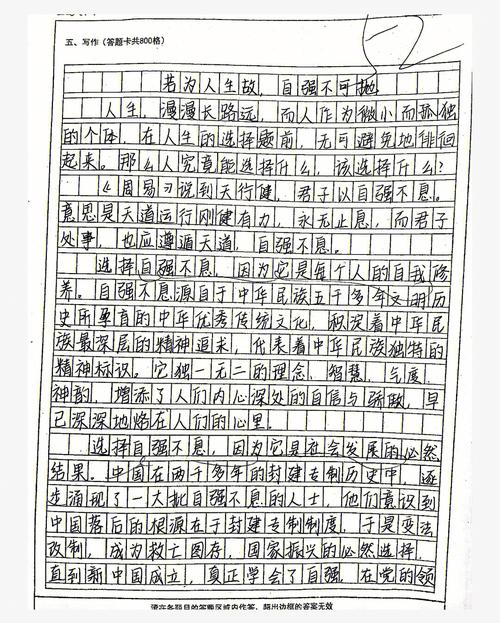 五、写作（答题卡共800格）
52
若为人生故，自强不可抛
人生，漫漫长路远，而人作为微小而孤独
的个体，在人生的选择题前，无可避免地徘徊
起来。那么人究竟能选择什么，该选择什么？
《周易》说到天行健，君子以自强不息。
意思是天道运行刚健有力，永无止息，而君子
处事，也应遵循天道，自强不息。
选择自强不息，因为它是每个人的自我修
养。自强不息源自于中华民族五千多年文明历
史所孕育的中华优秀传统文化，积淀着中华民
族最深层的精神追求，代表着中华民族独特的
精神标识。它独一无二的理念、智慧、气度、
神韵，增添了人们内心深处的自信与骄傲，早
已深深地烙在人们的心里。
选择自强不息，因为它是社会发展的必然
结果。中国在两千多年的封建专制历史中，逐
步涌现了一大批自强不息的人士，他们意识到
中国落后的根源在于封建专制制度，于是变法
改制，成为救亡图存，国家振兴的必然选择，
直到新中国成立，真正学会了自强。在党的领
请在各题目的答题区域内作答，超出边框的答案无效